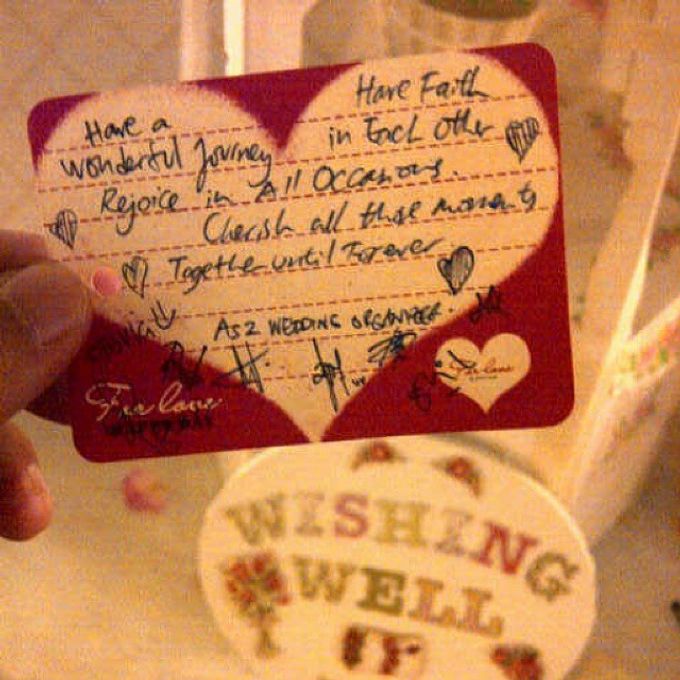 Have a
wonderful Journey
Have Faith
in Each Other
Rejoice in All Occasions.
Cherish all those moments
Together until Forever
AS2 WEDDING ORGANIZER.
For love
WISHING
WELL